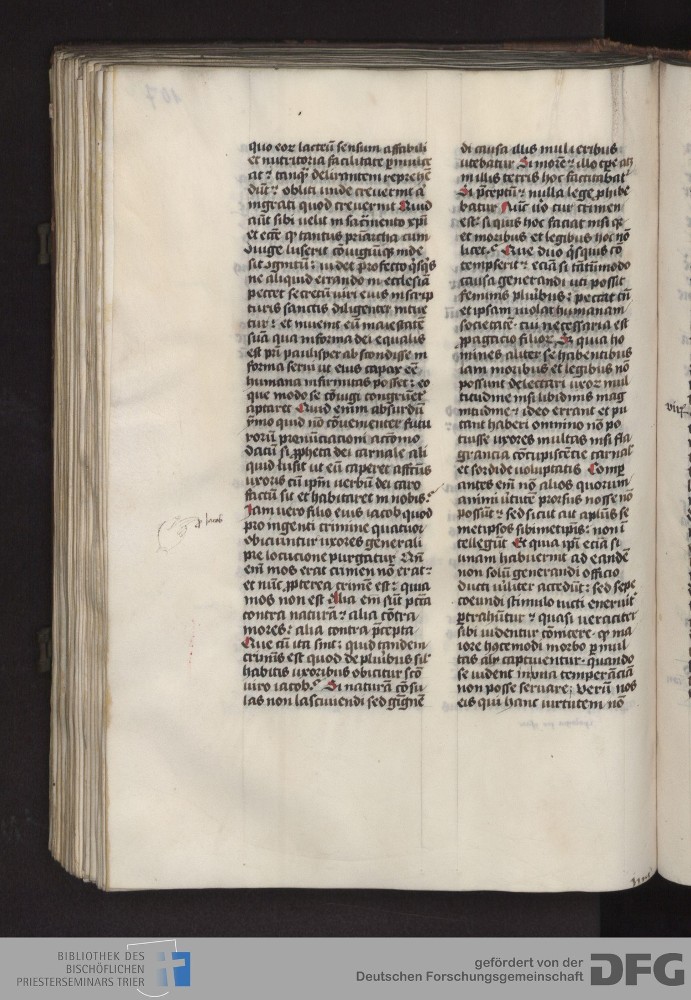 quo eoꝝ lacteū sensum affabili
et nutritoria facilitate ꝑmulce
at ⁊ tanqͣ delirantem reprehē
dūt ⁊ obliti unde creuerint a
ingrati quod creuerint Quid
aūt sibi uelit in sacͣmento xpī
et eccē qͥ tantus priarcha cum
ↄiuge luserit cōiugiūqꝫ inde
sit ↄgnitū : uidet profecto qͥsqͥs
ne aliquid errando in ecclesiā
peccet secretū uiri eius in scrip
turis sanctis diligenter intue
tur : et inuenit eū maiestatē
suā qua in forma dei equalis
est pri paulisper abscondisse in
forma serui ut eius capax eē
humana infirmitas posset : eo
que modo se cōiugi congruēt
aptaret Quid enim absurdū
ymo quid nō cōuenienter futu
rorū pronūciacioni accōmo
datū si ꝓpheta dei carnale ali
quid lusit ut eū caperet affectus
uxoris cū ipm̄ uerbū dei caro
factū sit et habitaret in nobis.
Iam uero filio eius iacob quod
pro ingenti crimine quatuor
obiciuntur uxores generali
pre locucione purgatur Qn̄
em̄ mos erat crimen nō erat ⁊
et nūc ꝓpterea crimē est : quia
mos non est Alia em̄ sūt pctā
contra naturā ⁊ alia cōtra
mores : alia contra p̄cepta
Que cū ita sint : quid tandem
criminis est quod de pluribus sil᷒
habitis uxoribus obicitur scō
uiro iacob. Si naturā cōsu
las non lasciuiendi sed gignē
di causa illis mulieribus
utebatur Si morē ⁊ illo tꝑe atqꝫ
in illis terris hoc factitabat᷒
Si p̄ceptū ⁊ nulla lege ꝓhibe
batur Nūc uͦo cur crimen
est : si quis hoc faciat nisi qꝫ
et moribus et legibus hoc nō
licet. Que duo qͥsquis cō
tempserit ⁊ eciā si tātūmodo
causa generandi uti possit
feminis pluribus : peccat tn̄
et ipsam uiolat humanam
societatē cui necessaria est
ꝓpagacio filioꝝ Sꝫ quia ho
mines aliter se habentibus
iam moribus et legibus nō
possunt delectari uxoꝝ mul
titudine nisi libidinis mag
nitudine ⁊ ideo errant et pu
tant haberi omnino nōn po
tuisse uxores multas nisi fla
grancia cōcupiscētie carnal᷒
et sordide uoluptatis Compꝑ
antes em̄ nō alios quorum
animi uͥtutē prorsus nosse nō
possūt ⁊ sed sicut ait apl̄us se
metipsos sibimetipsis : non ī
tellegūt Et quia ipī eciā si
unam habuerint ad eandē
non solū generandi officio
ducti uiliter accedūt : sed sepe
coeundi stimulo uicti eneruit᷒
ꝑtrahūtur ⁊ quasi ueraciter
sibi uidentur cōnicere qꝫ ma
iore hocemodi morbo ꝑ mul
tas alij captiuentur quando
se uident in una temperāciā
non posse seruare : Verū nos
eis qui hanc uirtutem nō
d᷒ Iacob
107
BIBLIOTHEK DES
BISCHÖFLICHEN
PRIESTERSEMINARS TRIER
gefördert von der
Deutschen Forschungsgemeinschaft
DFG